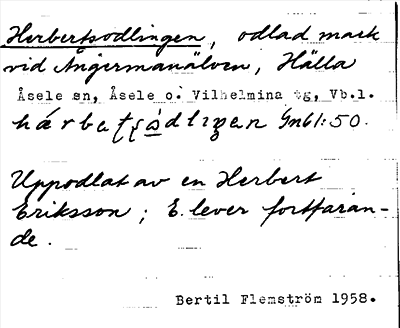 Herbertsodlingen, odlad mark
vid Ångermanälven, Hälla
Åsele sn, Åsele o. Vilhelmina tg, Vb.l.
Gnbl:50.
Uppodlat av en Herbert
Eriksson; E. lever fortfaran-
de.
Bertil Flemström 1958.